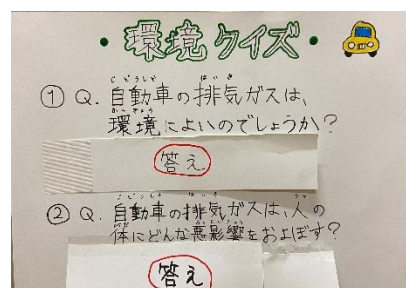 ・環境クイズ・
① Q. 自動車の排気ガスは、
環境によいのでしょうか?
答え
② Q. 自動車の排気ガスは、人の
体にどんな悪影響をおよぼす?
答え